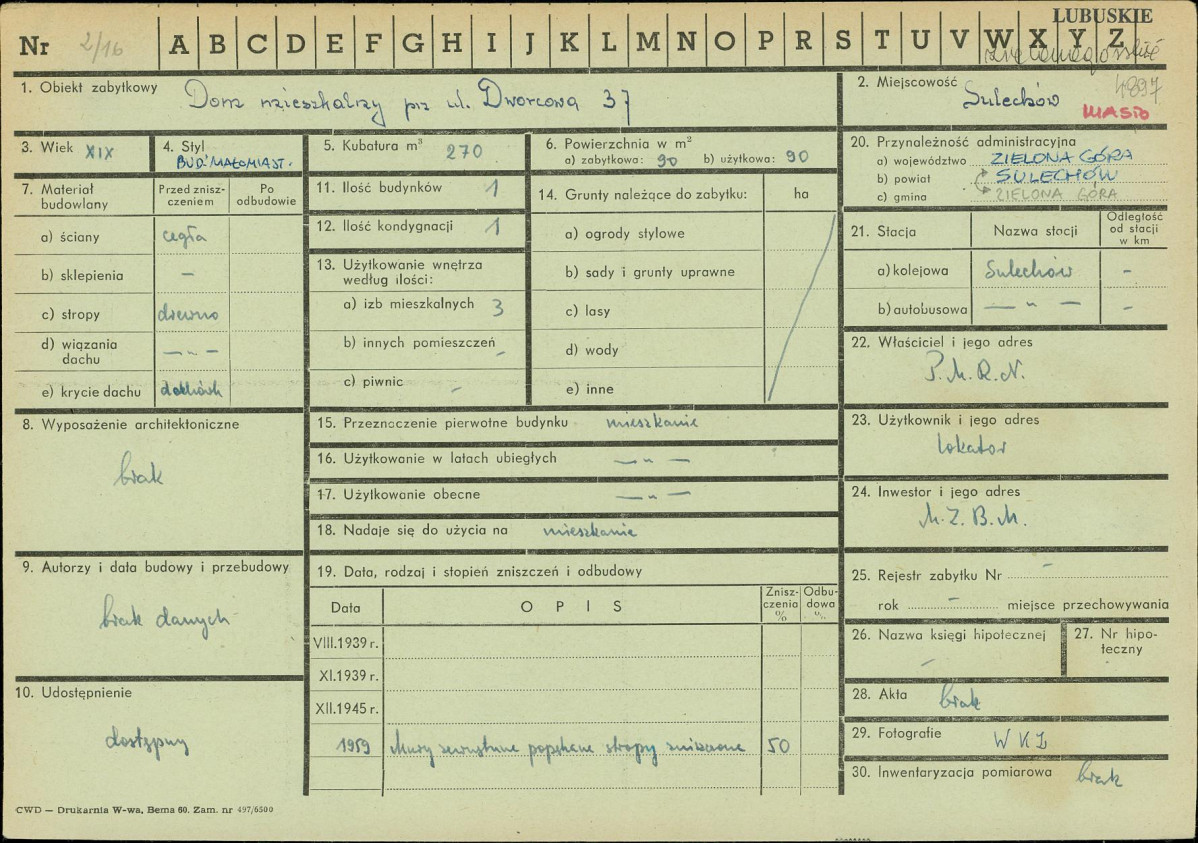 LUBUSKIE
Nr 2/16 A B C D E F G H I J K L M N O P R S T U V W X Y Z
1. Obiekt zabytkowy Dom mieszkalny prz ul. Dworcowa 37
2. Miejscowość Sulechów
4897
MIASTO
3. Wiek XIX
4. Styl BUD. MAŁOMIAST.
5. Kubatura m³ 270
6. Powierzchnia w m²
a) zabytkowa: 90 b) użytkowa: 90
7. Materiał budowlany
Przed zniszczeniem
Po odbudowie
a) ściany cegła
b) sklepienia –
c) stropy drewno
d) wiązania dachu — „ —
e) krycie dachu dachówk
8. Wyposażenie architektoniczne
brak
9. Autorzy i data budowy i przebudowy
brak danych
10. Udostępnienie
dostępny
11. Ilość budynków 1
12. Ilość kondygnacji 1
13. Użytkowanie wnętrza
według ilości:
a) izb mieszkalnych 3
b) innych pomieszczeń –
c) piwnic –
14. Grunty należące do zabytku: ha
a) ogrody stylowe
b) sady i grunty uprawne
c) lasy
d) wody
e) inne
15. Przeznaczenie pierwotne budynku mieszkanie
16. Użytkowanie w latach ubiegłych — „ —
17. Użytkowanie obecne — „ —
18. Nadaje się do użycia na mieszkanie
19. Data, rodzaj i stopień zniszczeń i odbudowy
Data
OPIS
Zniszczenia %
Odbudowa %
VIII.1939 r.
XI.1939 r.
XII.1945 r.
1959 Mury zewnętrzne popękane stropy zniszczone 50
20. Przynależność administracyjna
a) województwo ZIELONA GÓRA
b) powiat SULECHÓW
c) gmina ZIELONA GÓRA
21. Stacja
Nazwa stacji
Odległość od stacji w km
a) kolejowa Sulechów –
b) autobusowa — „ — –
22. Właściciel i jego adres
P.M.R.N.
23. Użytkownik i jego adres
lokator
24. Inwestor i jego adres
M.Z.B.M.
25. Rejestr zabytku Nr –
rok – miejsce przechowywania
26. Nazwa księgi hipotecznej
–
27. Nr hipoteczny
28. Akta brak
29. Fotografie WKZ
30. Inwentaryzacja pomiarowa brak
CWD — Drukarnia W-wa, Bema 60. Zam. nr 497/6500